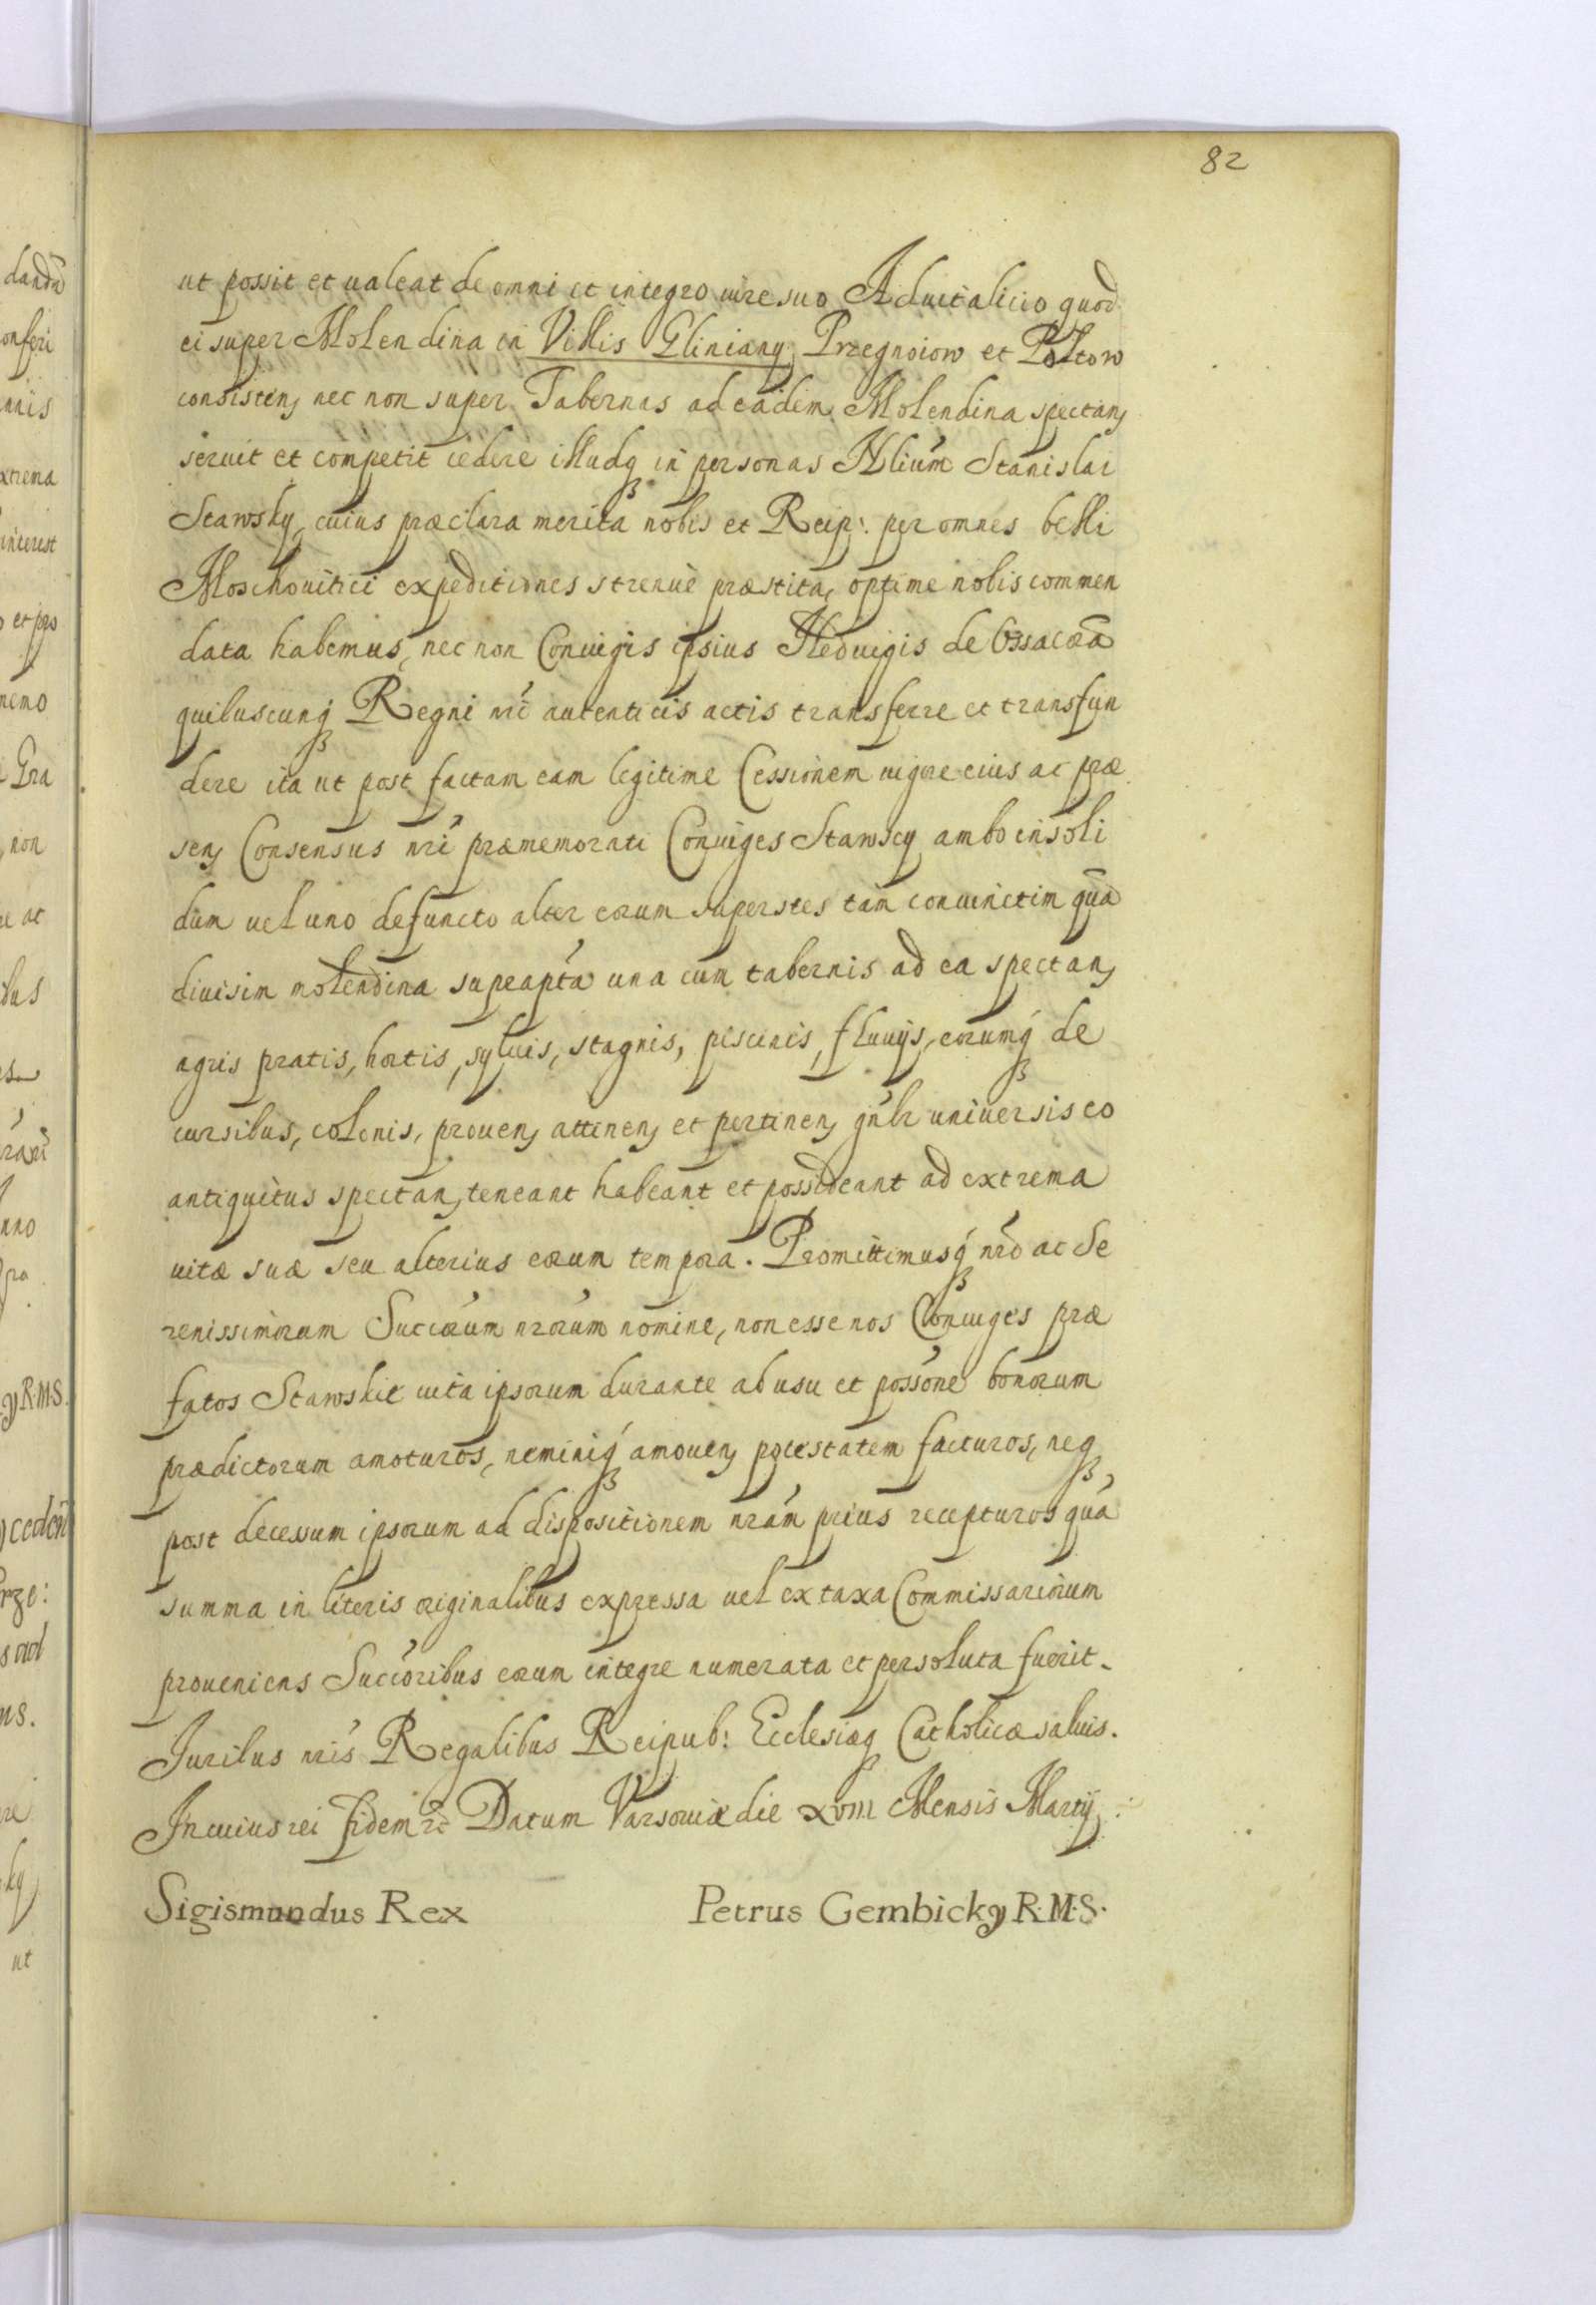 82
ut possit et ualeat de omni et integro iure suo Aduitalicio quod
ei super Molendina in Villis Gliniany Przegnoiow et Poltow
consisten, nec non super Tabernas ad eadem Molendina spectan,
seruit et competit cedere illudq in personas Nlium Stanislai
Stawsky, cuius præclara merita nobis et Reip: per omnes belli
Moschouitici expeditiones strenue præstita, optime nobis commen
data habemus, nec non Coniugis ipsius Heduigis de
quibuscunq Regni nri autenticis actis transferre et transfun
dere ita ut post factam eam legitime Cessionem uigore eius ac præ
sen, Consensus nri præmemorati Coniuges Stawscy ambo insoli
dum uel uno defuncto alter eorum superstes tam coniunctim qua
diuisim molendina suprapta una cum tabernis ad ea spectan,
agris pratis, hortis, syluis, stagnis, piscinis, fluuijs, eorumq de
cursibus, colonis, prouen, attinen, et pertinen, gnlr uniuersis eo
antiquitus spectan, teneant habeant et possideant ad extrema
uitæ suæ seu alterius eorum tempora. Promittimusq nro ac Se
renissimorum Succorum nrorum nomine, non esse nos Coniuges præ
fatos Stawskie uita ipsorum durante ab usu et possone bonorum
prædictorum amoturos, neminiq amouen, potestatem facturos, neq
post decessum ipsorum ad dispositionem nram prius recepturos qua
summa in literis originalibus expressa uel ex taxa Commissariorum
proueniens Succoribus eorum integre numerata et persoluta fuerit.
Juribus nris Regalibus Reipub: Ecclesiæq Catholicæ saluis.
In cuius rei fidem etc Datum Varsouiæ die XVIII Mensis Martij
Sigismundus Rex Petrus Gembicky R.M.S.